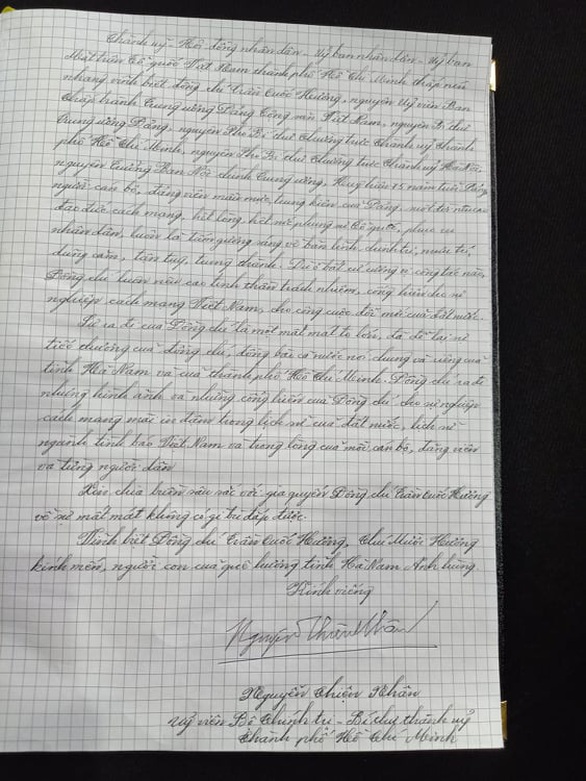 Thành uỷ - Hội đồng nhân dân - Uỷ ban nhân dân - Uỷ ban
Mặt trận Tổ quốc Việt Nam thành phố Hồ Chí Minh thắp nén
nhang vĩnh biệt đồng chí Trần Quốc Hương, nguyên Uỷ viên Ban
Chấp hành Trung ương Đảng Cộng sản Việt Nam, nguyên Bí thư
Trung ương Đảng, nguyên Phó Bí thư Thường trực Thành uỷ thành
phố Hồ Chí Minh, nguyên Phó Bí thư Thường trực Thành uỷ Hà Nội,
nguyên Trưởng Ban Nội chính Trung ương, Huy hiệu 75 năm tuổi Đảng,
người cán bộ, đảng viên mẫu mực, trung kiên của Đảng, suốt đời nêu cao
đạo đức cách mạng, hết lòng, hết sức phụng sự Tổ quốc, phục vụ
nhân dân, luôn là tấm gương sáng về bản lĩnh, chính trị, mưu trí,
dũng cảm, tận tuỵ, trung thành. Dù ở bất cứ cương vị công tác nào,
Đồng chí luôn nêu cao tinh thần trách nhiệm, cống hiến cho sự
nghiệp cách mạng Việt Nam, cho công cuộc đổi mới của đất nước.
Sự ra đi của Đồng chí là một mất mát to lớn, đã để lại sự
tiếc thương của đồng chí, đồng bào cả nước nói chung và riêng của
tỉnh Hà Nam và của thành phố Hồ Chí Minh. Đồng chí ra đi
nhưng hình ảnh và những cống hiến của Đồng chí cho sự nghiệp
cách mạng mãi in đậm trong lịch sử của đất nước, lịch sử
ngành tình báo Việt Nam và trong lòng của mỗi cán bộ, đảng viên
và từng người dân.
Xin chia buồn sâu sắc với gia quyến Đồng chí Trần Quốc Hương
về sự mất mát không có gì bù đắp được.
Vĩnh biệt Đồng chí Trần Quốc Hương, Chú Mười Hương
kính mến, người con của quê hương tỉnh Hà Nam Anh hùng.
Kính viếng
Nguyễn Thiện Nhân
Nguyễn Thiện Nhân
Uỷ viên Bộ Chính trị - Bí thư thành uỷ
Thành phố Hồ Chí Minh